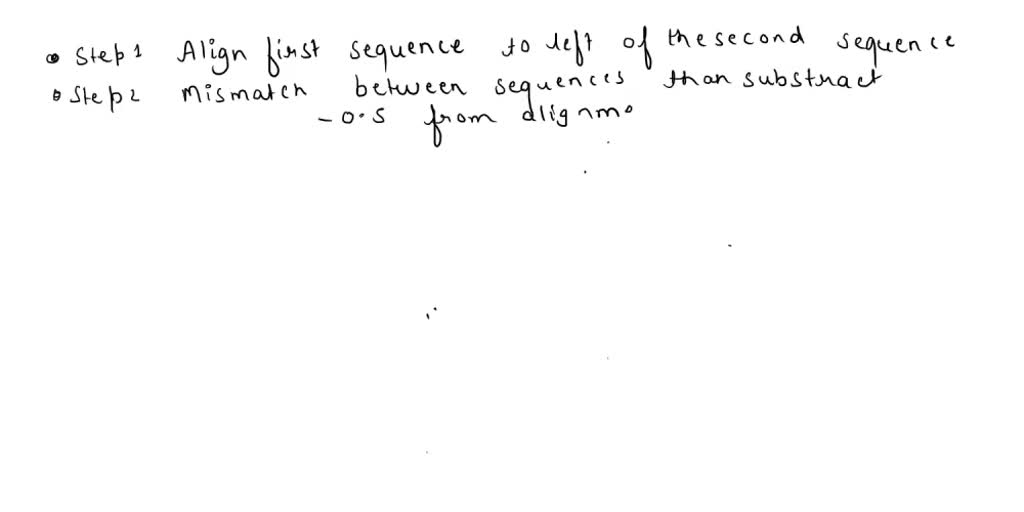 • Step 1 Align first sequence to left of the second sequence
• Step 2 Mismatch between sequences than substract
- 0.5 from alignme